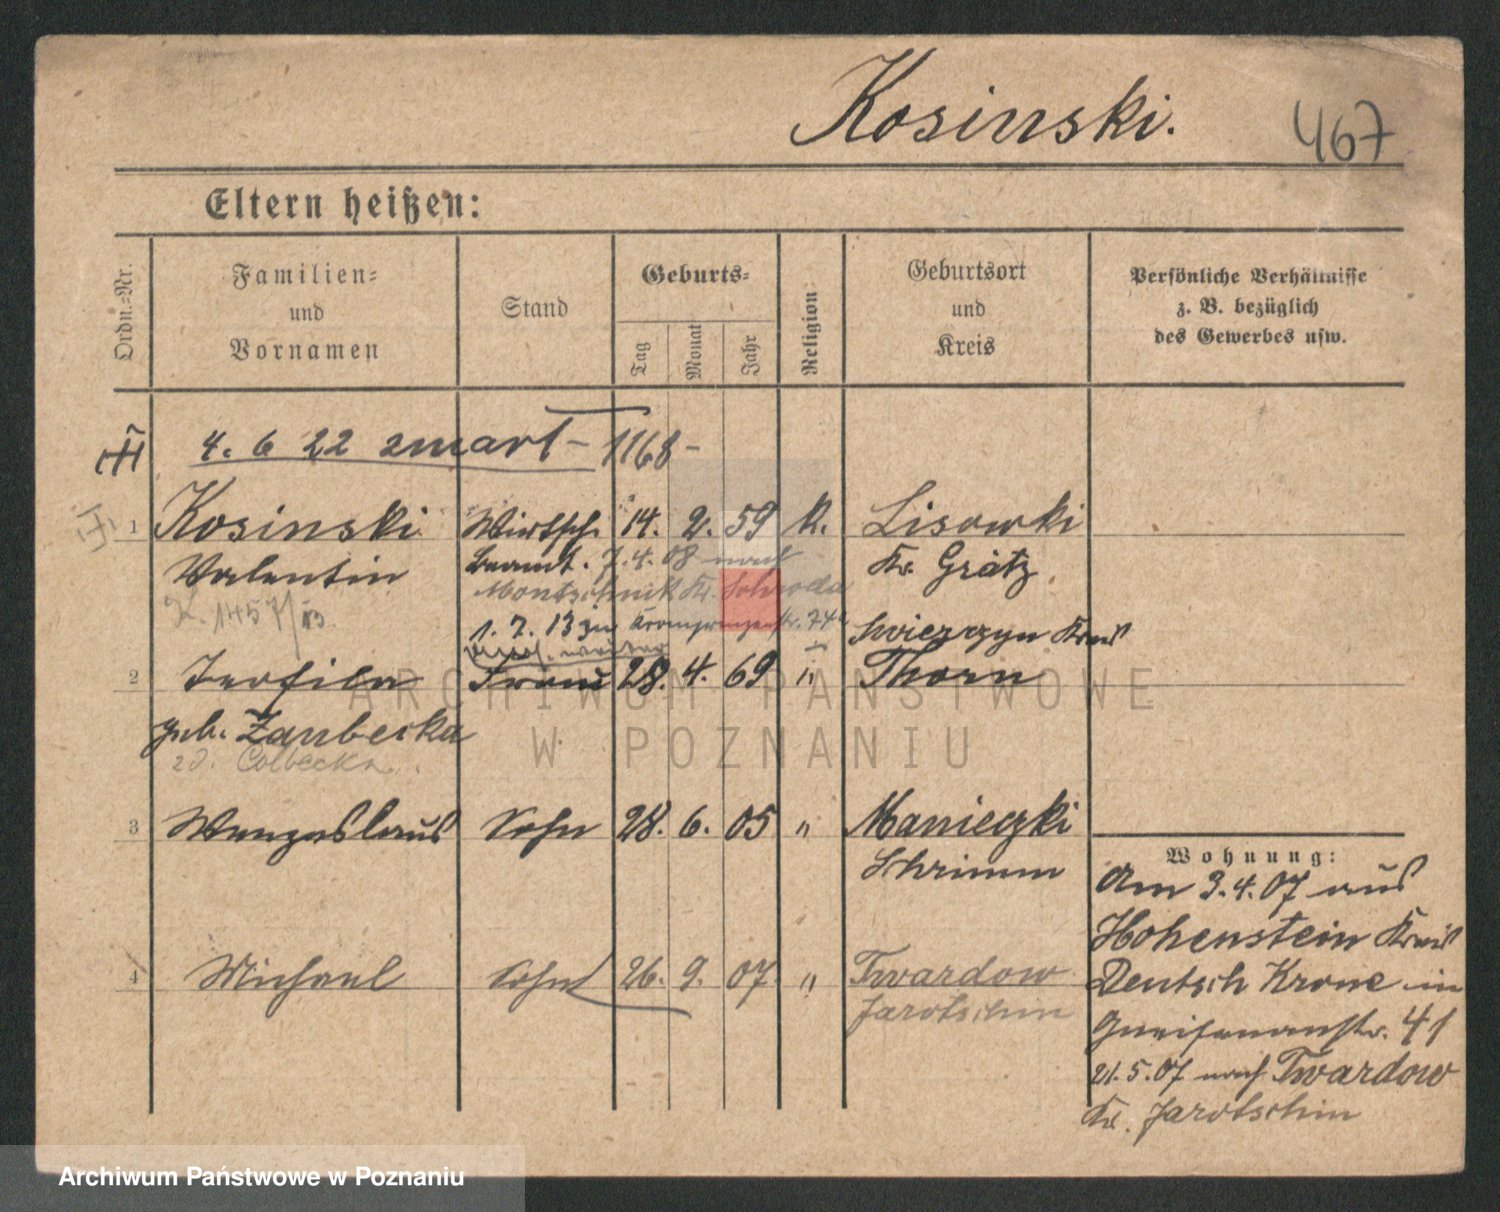 Kosinski. 467
Eltern heißen:
Ordn.-Nr.
Familien-
und
Vornamen
Stand
Geburts-
Tag
Monat
Jahr
Religion
Geburtsort
und
Kreis
Persönliche Verhältnisse
z. B. bezüglich
des Gewerbes usw.
4. 6 22 zmarł – 1168 –
1 Kosinski Wirtsch. 14. 2. 59 K. Lisowki
Valentin Beamt. 7.4.08 nach Kr. Grätz
K. 1457/13. Kr. Schroda
1. 7. 13 zu
Swierczyn Kreis
2 Teofila Frau 28. 4. 69 " Thorn
geb. Zaubecka
Colbecka
3 Wenzeslaus Sohn 28. 6. 05 " Manieczki
Schrimm
4 Michael Sohn 26. 9. 07. " Twardow
Jarotschin
Wohnung:
Am 3.4.07 aus
Hohenstein Kreis
Deutsch Krone in
Gneisenaustr. 41
21.5.07 nach Twardow
Kr. Jarotschin
ARCHIWUM PAŃSTWOWE
W POZNANIU
Archiwum Państwowe w Poznaniu